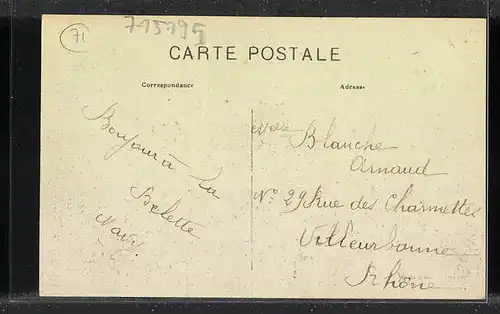 71
715195
CARTE POSTALE
Correspondance
Adresse
Bonjour à la
Belette
Melle Blanche
Arnaud
N° 29 Rue des Charmettes
Villeurbanne
Rhône